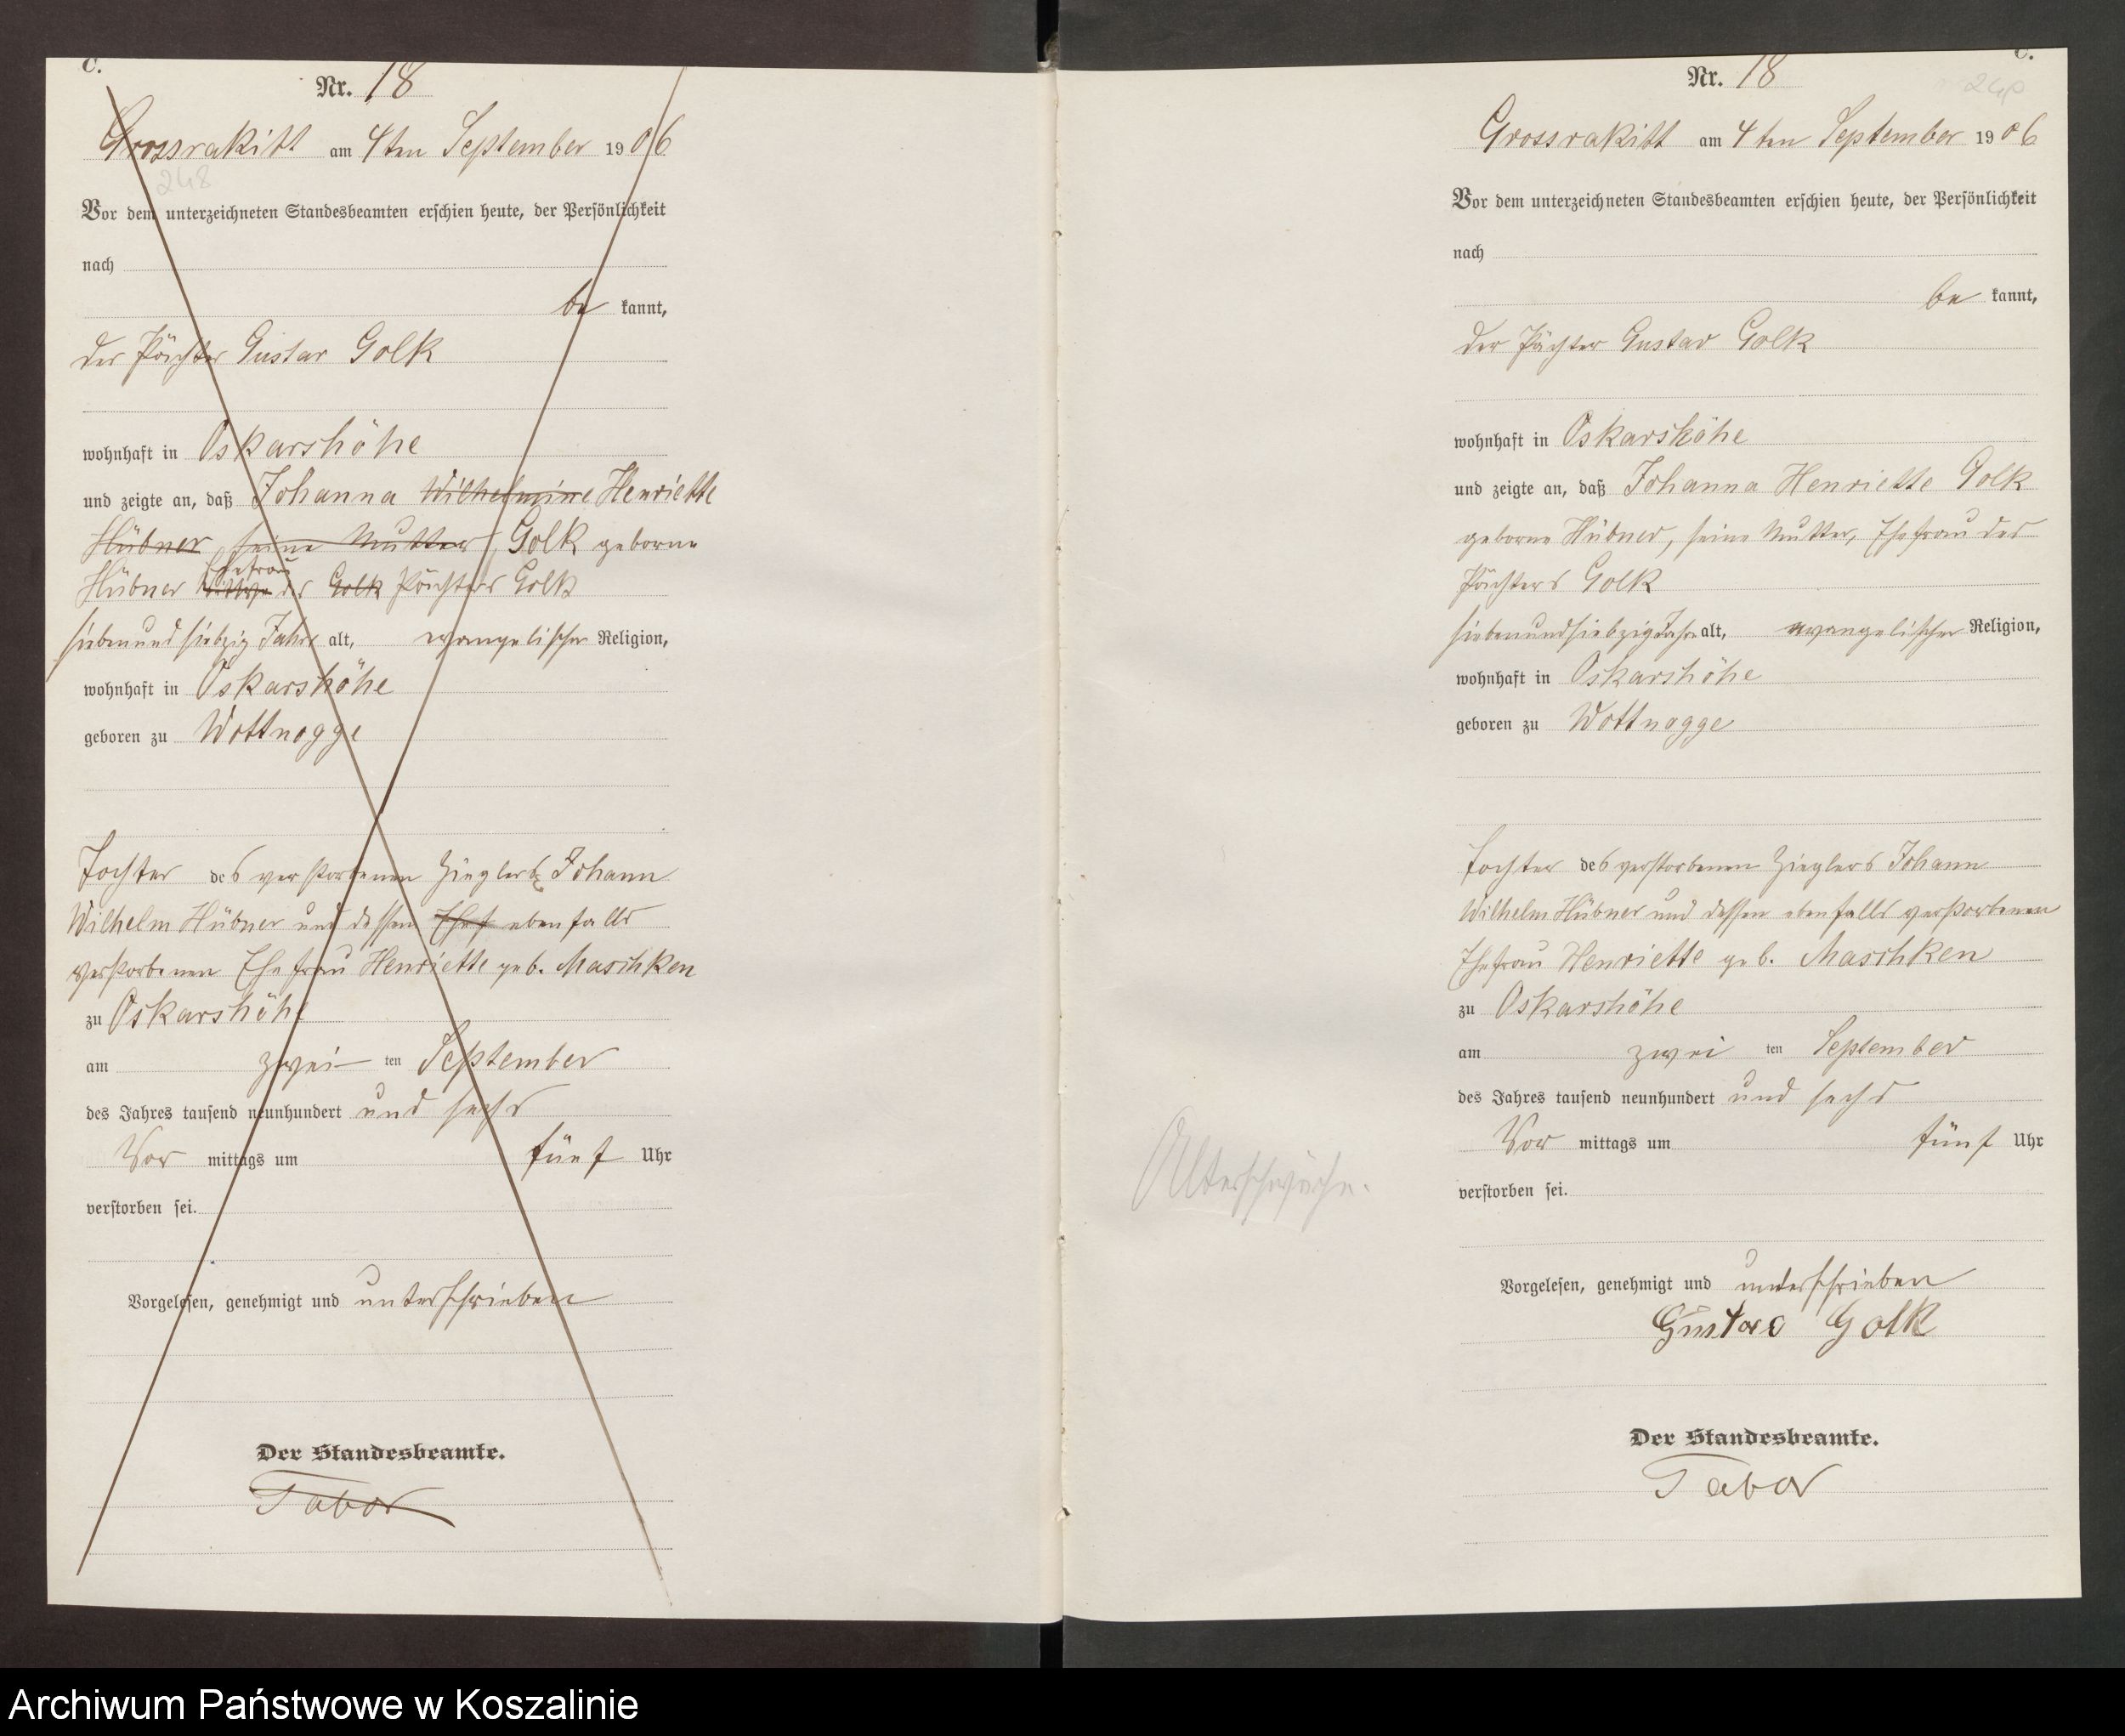 C.
Nr. 18
Grossrakitt am 4ten September 1906
248
Vor dem unterzeichneten Standesbeamten erschien heute, der Persönlichkeit
nach
be kannt,
der Pächter Gustav Golk
wohnhaft in Oskarshöhe
und zeigte an, daß Johanna Wilhelmine Henriette
Hübner, seine Mutter, Golk geborne
Ehefrau
Hübner Wittwe des Golk Pächters Golk
siebenundsiebzig Jahre alt, evangelischer Religion,
wohnhaft in Oskarshöhe
geboren zu Wottnogge
Tochter des verstorbenen Zieglers Johann
Wilhelm Hübner und dessen Ehef ebenfalls
verstorbenen Ehefrau Henriette geb. Maschken
zu Oskarshöhe
am zwei ten September
des Jahres tausend neunhundert und sechs
Vor mittags um fünf Uhr
verstorben sei.
Vorgelesen, genehmigt und unterschrieben
Der Standesbeamte.
Tabor
C.
Nr. 18
Grossrakitt am 4ten September 1906
Vor dem unterzeichneten Standesbeamten erschien heute, der Persönlichkeit
nach
be kannt,
der Pächter Gustav Golk
wohnhaft in Oskarshöhe
und zeigte an, daß Johanna Henriette Golk
geborne Hübner, seine Mutter, Ehefrau des
Pächters Golk
siebenundsiebzig Jahre alt, evangelischer Religion,
wohnhaft in Oskarshöhe
geboren zu Wottnogge
Tochter des verstorbenen Zieglers Johann
Wilhelm Hübner und dessen ebenfalls verstorbenen
Ehefrau Henriette geb. Maschken
zu Oskarshöhe
am zwei ten September
des Jahres tausend neunhundert und sechs
Vor mittags um fünf Uhr
Altersschwäche.
verstorben sei.
Vorgelesen, genehmigt und unterschrieben
Gustav Golk
Der Standesbeamte.
Tabor
Archiwum Państwowe w Koszalinie